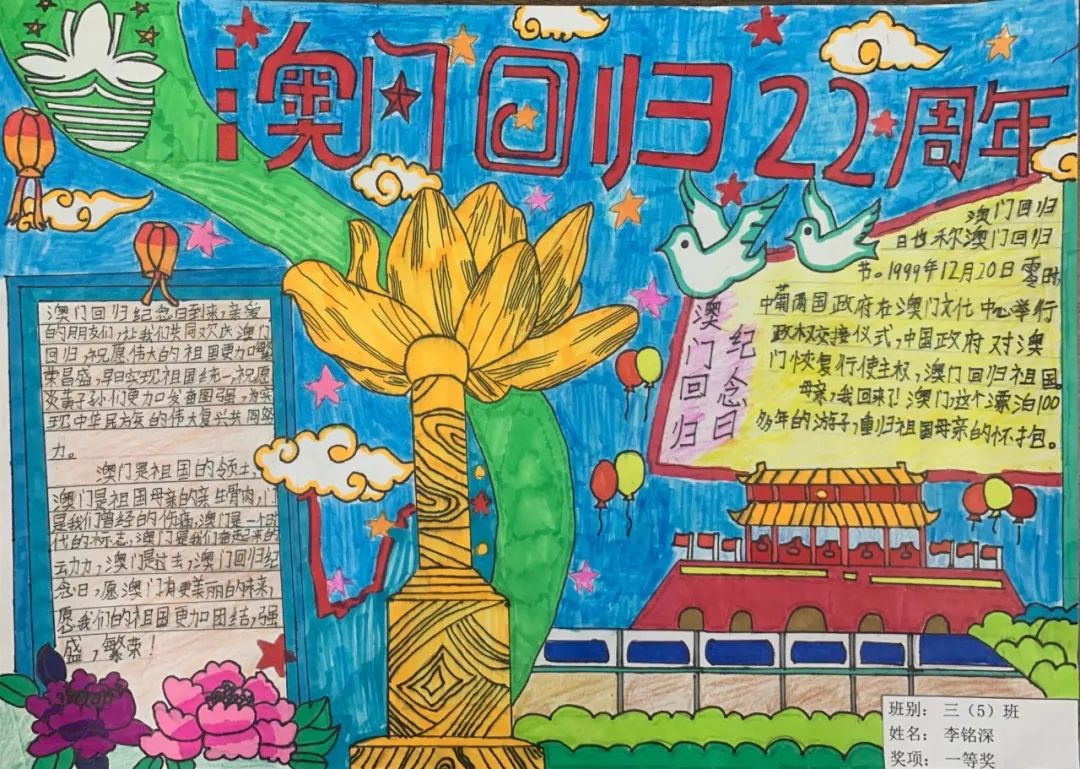 澳门回归22周年
澳门回归纪念日到来,亲爱
的朋友们,让我们共同欢庆澳门
回归,祝愿伟大的祖国更加繁
荣昌盛,早日实现祖国统一,祝愿
炎黄子孙们更加发奋图强,为实
现中华民族的伟大复兴共同努
力。
澳门是祖国的领土,
澳门是祖国母亲的亲生骨肉,澳门
是我们曾经的伤痛,澳门是一个时
代的标志,澳门是我们奋起来的
云力力,澳门是过去,澳门回归纪
念日,愿澳门有更美丽的未来,
愿我们的祖国更加团结,强
盛,繁荣!
澳门回归
纪念日
澳门回归
日也称澳门回归
节。1999年12月20日零时,
中葡两国政府在澳门文化中心举行
政权交接仪式,中国政府对澳
门恢复行使主权,澳门回归祖国。
母亲,我回来了!澳门这个漂泊100
多年的游子,重归祖国母亲的怀抱。
班别: 三(5)班
姓名: 李铭深
奖项: 一等奖